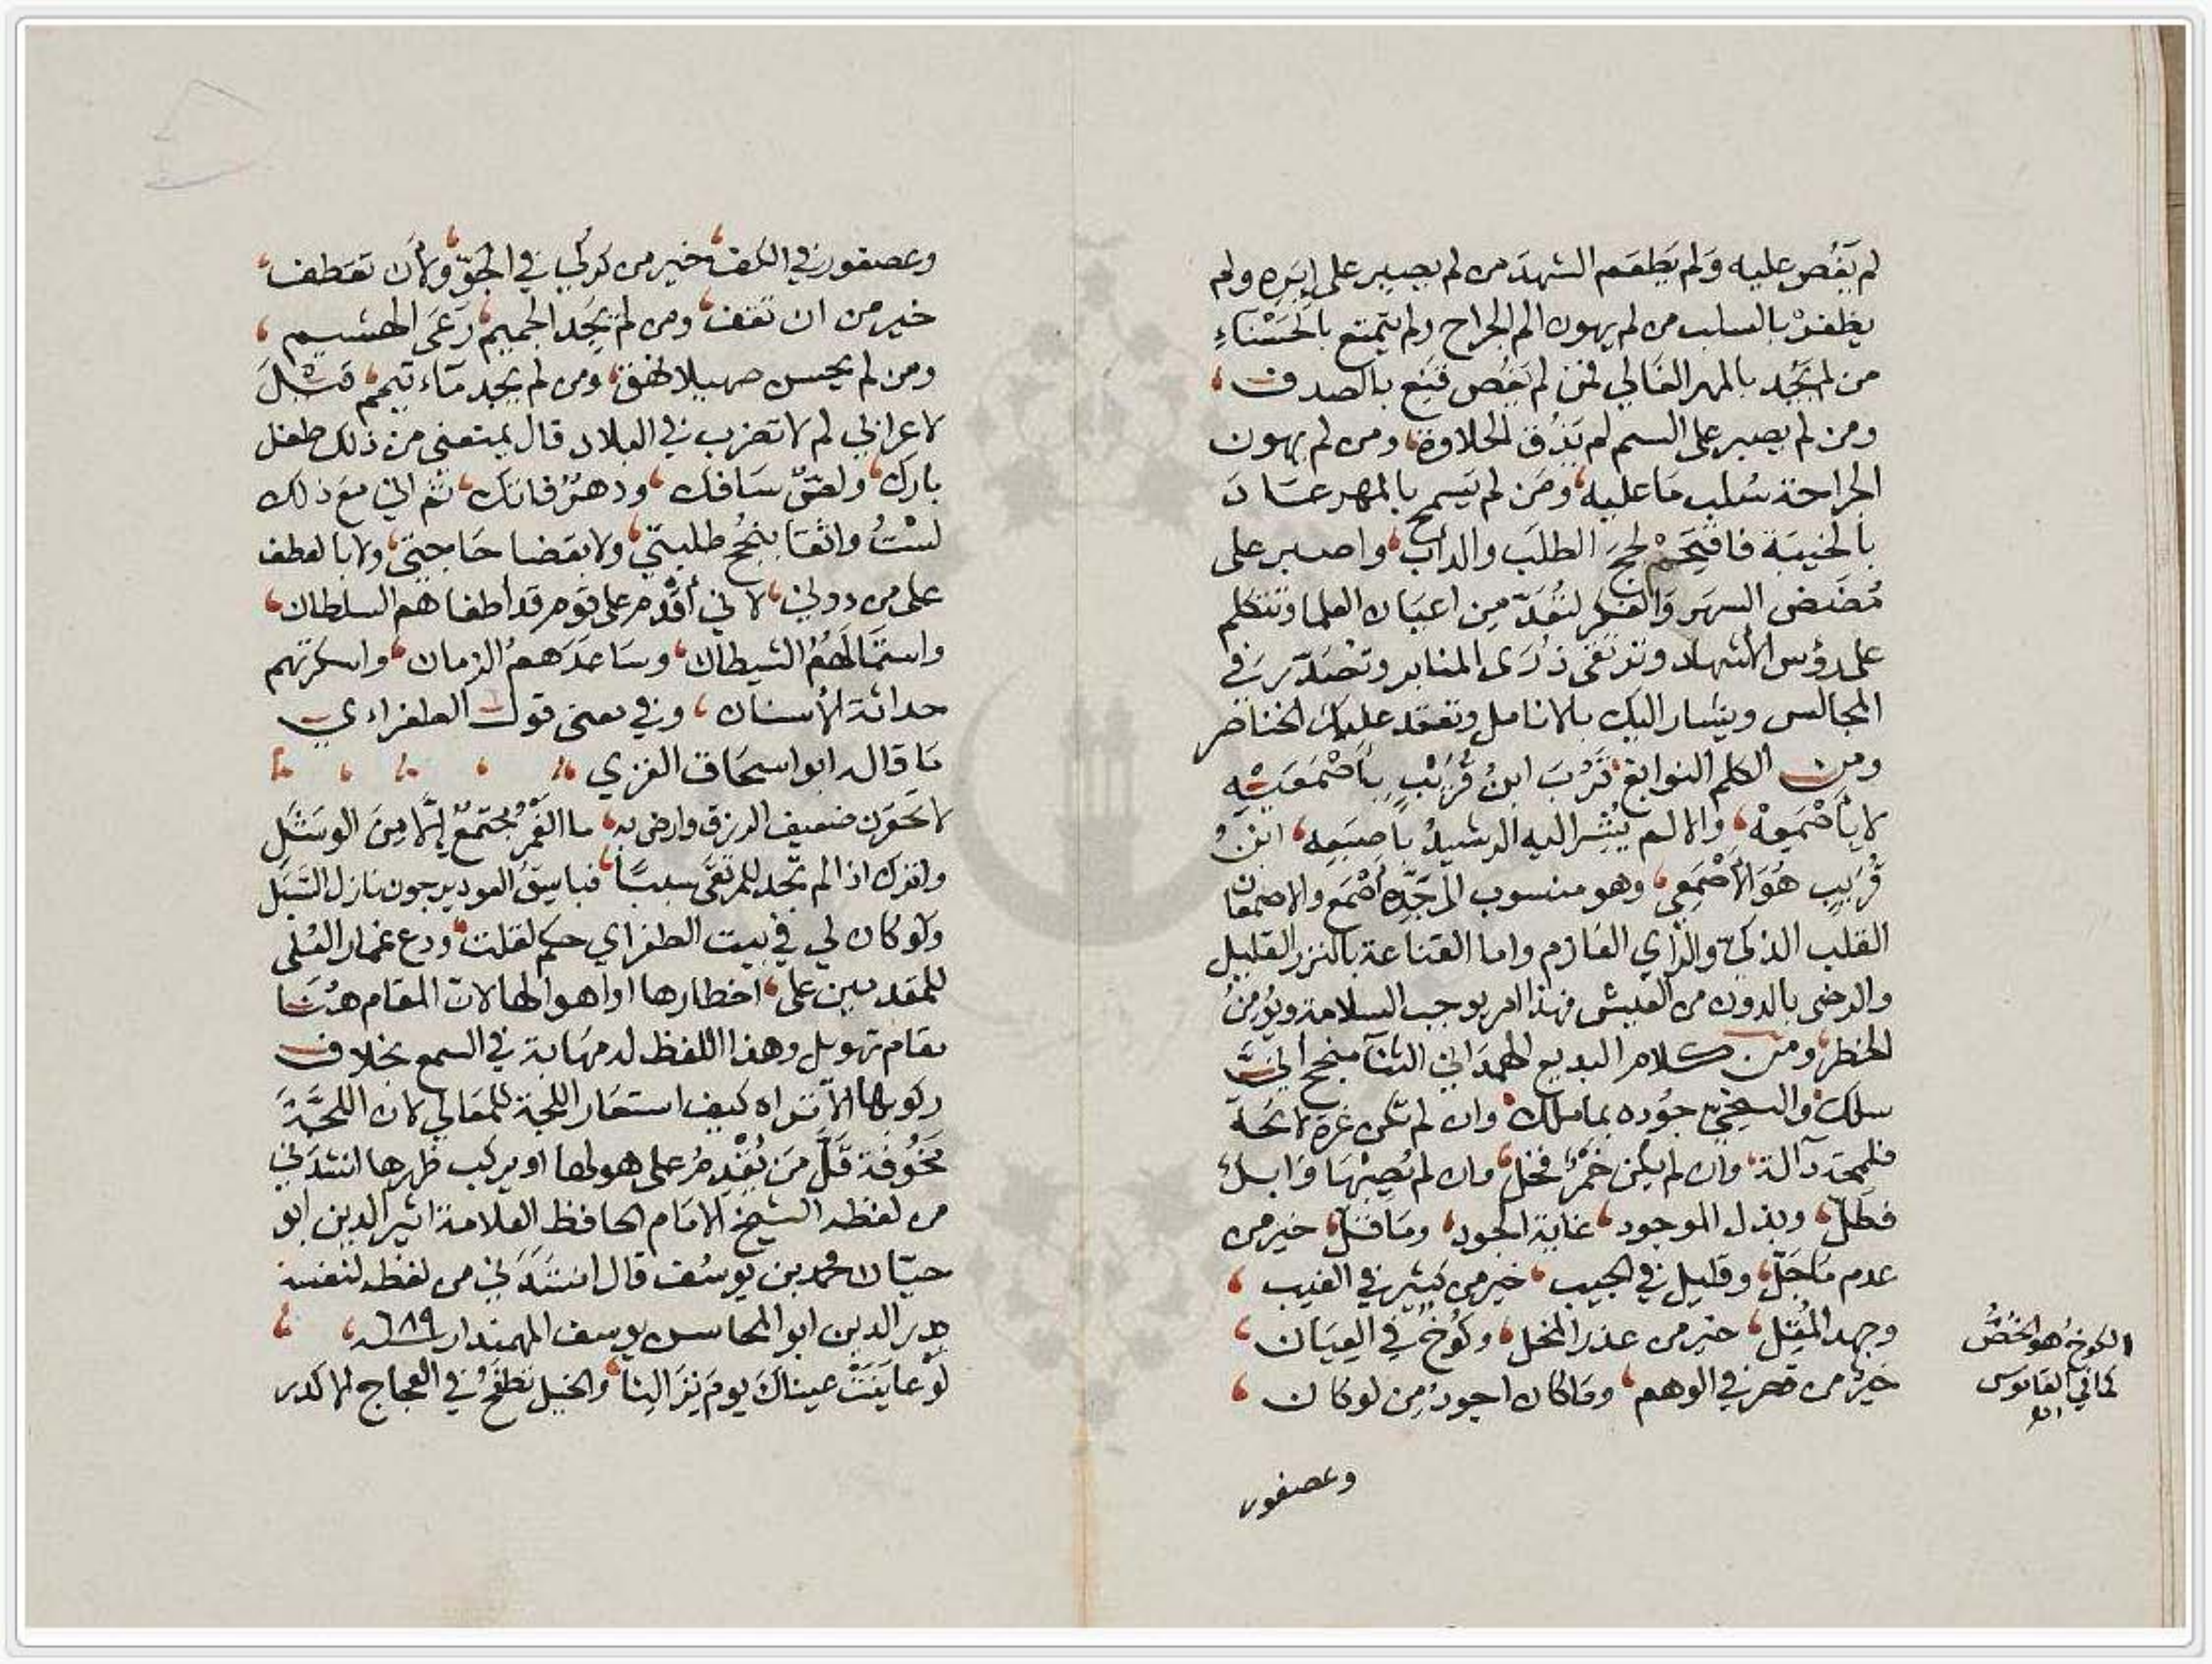 لم يَغُص عليه وَلم يَطعَم الشهدَ من لم يصبر على إبَرِه ولم
يظفرْ بالسلب من لم يهون الم الجراح ولم يتمتع بالحَسْنَاءِ
من لم يَجُد بالمهر الغَالي فمن لم يَغُص قَنِع بالصدف
ومن لم يصبر على السم لم يَذُق الحلاوة ومن لم يهون
الجراحة سُلب مَا عليه ومَن لم يَسمح بالمهر عَادَ
بالخيبَة فاقتحم لججَ الطلَب والداب واصبر على
مُضَض السهَر والفكر لتُعَدّ مِن اعيَان العلما وتتكلم
على رؤس الأشهاد وترتقى ذُرَى المنابر وتصَدّر في
المجالس ويشار اليك بالانامل وتعقد عليك الخناصر
ومن الكلم النوابغ تَرُبَ ابنُ قُرَيْبٍ بأَصْمَعَيْهِ
لا بأصْمَعِهْ والا لم يُشِر اليه الرشيدُ بأصبَعِه ابنُ
قُرَيب هُوَ الأَصْمَعي وهو منسوب الى جَدِّه أَصْمَع والاصمعان
القلب الذكيّ والرأي العَازم واما القناعة بالنزر القليل
والرضى بالدون من العيش فهذا امر يوجب السلامة ويؤمنُ
الخطر ومن كلام البديع الهمدَاني الثنآ منجح انَّى
سلك والسخيّ جُوده بما ملك وان لم تكن غرة لائحَة
فلمحة دآلة وان لم يكن خَمْرٌ فخل وان لم يُصِبْهَا وَابلٌ
فطَلّ وبذل الموجود غاية الجود ومَا قَلّ خير من
عدم مَا جَلّ وقليل في الجيب خير من كثير في الغيب
وجهد المُقِل خير من عذر المخل وكُوخٌ في العِيَان
خيرٌ من قصر في الوهم ومَا كان اجودُ مِن لو كان
الكوخ هو الخُصُّ
كما في القاموس
اهـ
وعصفور
وعصفور في الكف خير من كركي في الجوّ ولأن تقطف
خير من ان تقف ومن لم يَجد الجميم رَعَى الهشيم
ومن لم يحسن صهيلا نهق ومن لم يجد مَآء تيمم قيلَ
لاعرابي لم لا تضرب في البلاد قال يمنعني من ذلك طفل
بارك ولصّ سَافك ودهرٌ فاتك ثم اني مع ذلك
لسْتُ واثقا بنجُح طلبتي ولا بقضا حَاجتي ولا بالعطف
على من دوني لاني أقْدم على قوم قد أطغاهم السلطان
واستمَالَهُمُ الشيطان وسَاعدَهم الزمان واسكرتهم
حداثة الأسنان وفي معنى قول الطغراءي
مَا قاله ابو اسحَاق الغزي
لا تحقرن ضعيف الرزق وارض به ما الغَمْرُ مُجتمعٌ إلّا مِنَ الوشَلِ
وانزل اذا لم تجد للمرتقَى سبَبًا
وَلو كان لي في بيت الطغراي حكم لقلت ودع غمار العُلى
للمقدمين على اخطارها او اهوالها لان المقام هُنَا
مقام تهويل وهذا اللفظ له مهَابة في السمع بخلاف
ركوبها الا تراه كيف استعَار اللجة للمعَالي لان اللجَّةَ
مَخُوفة قَلَّ مَن يُقْدِمُ على هولها او يركب ظهرها انشدني
من لفظه الشيخ الامَام الحافظ العلامة اثير الدين ابو
حيّان محمد بن يوسُف قال انشَدَني من لفظه لنفسه
بدر الدين ابو المحاسن يوسف المهمندار سنة ٦٨٩
لَوْ عاينَتْ عيناكَ يومَ نزَالِنا والخيل تطفَحُ في العجاج الاكدر